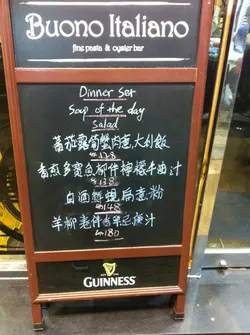 Buono Italiano
fine pasta & oyster bar
Dinner Set
Soup of the day
Salad
蕃茄露荀蟹肉意大利飯
128
香煎多寶魚柳伴檸檬牛油汁
138
白酒蜆 意粉
148
羊柳 伴 汁
180
GUINNESS